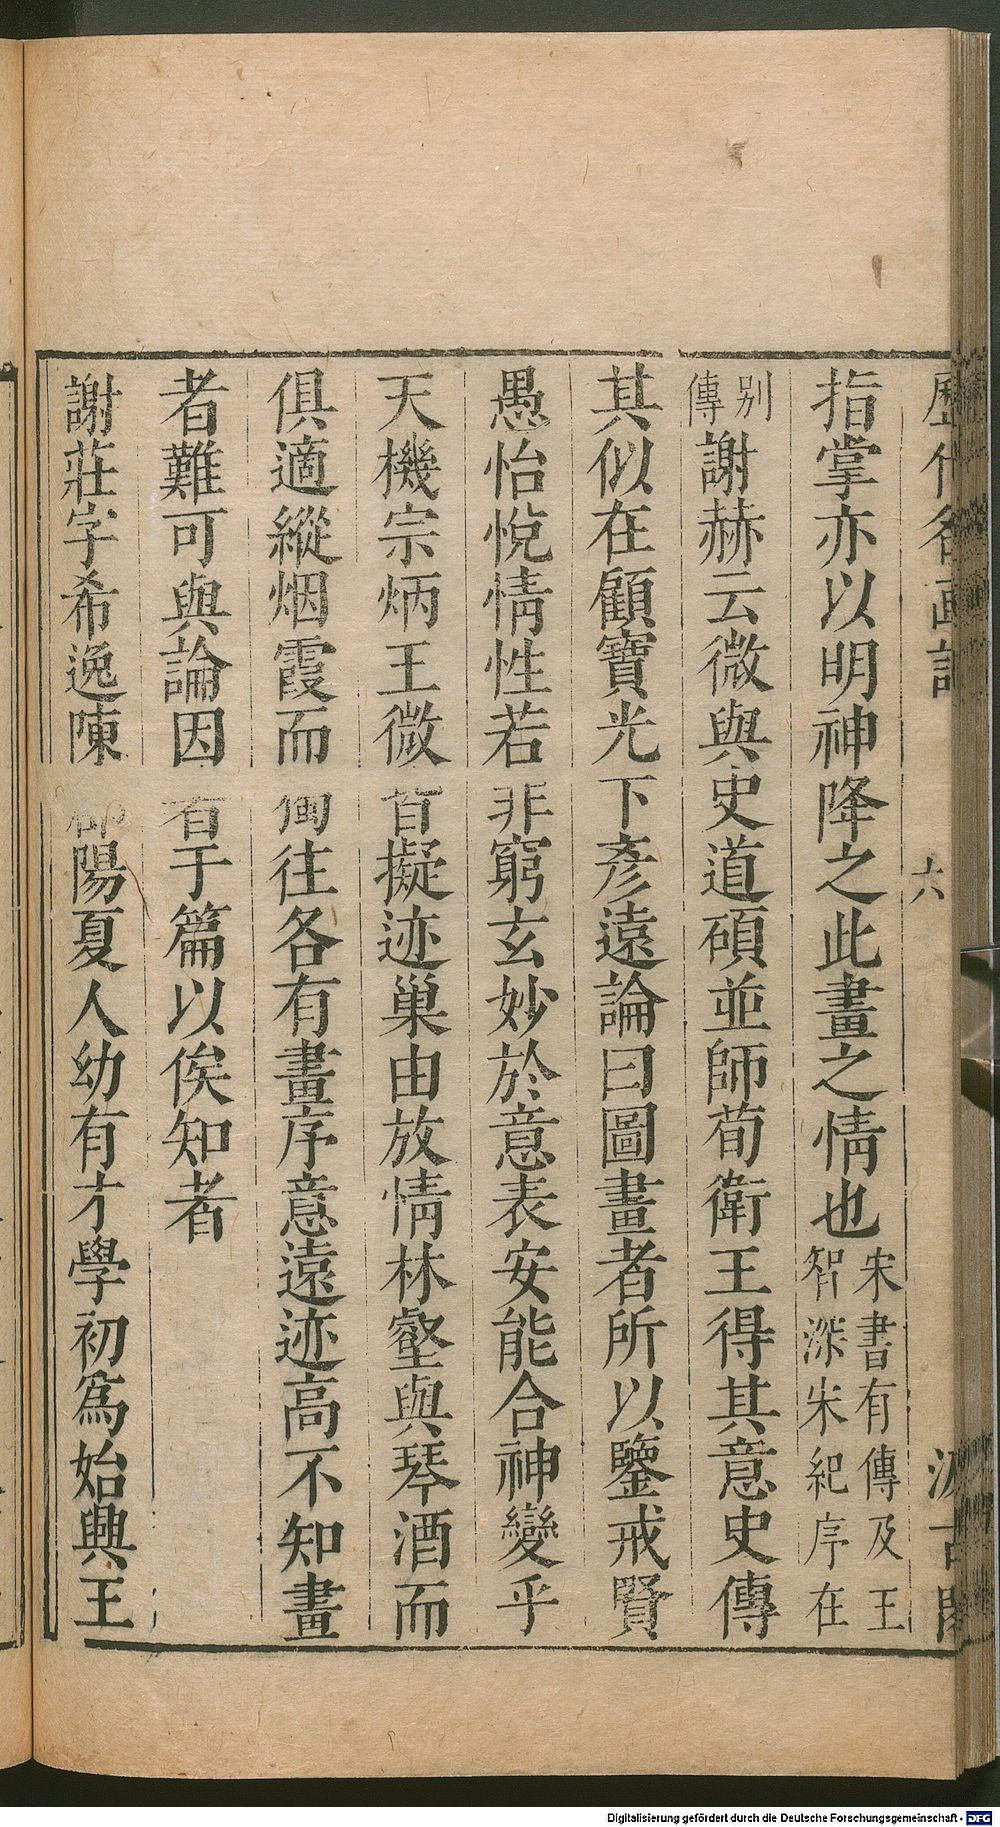 歷代名画記 六 汲古閣
指掌亦以明神降之此畫之情也宋書有傳及王智深宋紀序在
别傳謝赫云微與史道碩並師荀衛王得其意史傳
其似在顧寶光下彥遠論曰圖畫者所以鑒戒賢
愚怡悅情性若非窮玄妙於意表安能合神變乎
天機宗炳王微皆擬迹巢由放情林壑與琴酒而
俱適縱烟霞而獨往各有畫序意遠迹高不知畫
者難可與論因著于篇以俟知者
謝莊字希逸陳郡陽夏人幼有才學初為始興王
Digitalisierung gefördert durch die Deutsche Forschungsgemeinschaft - DFG